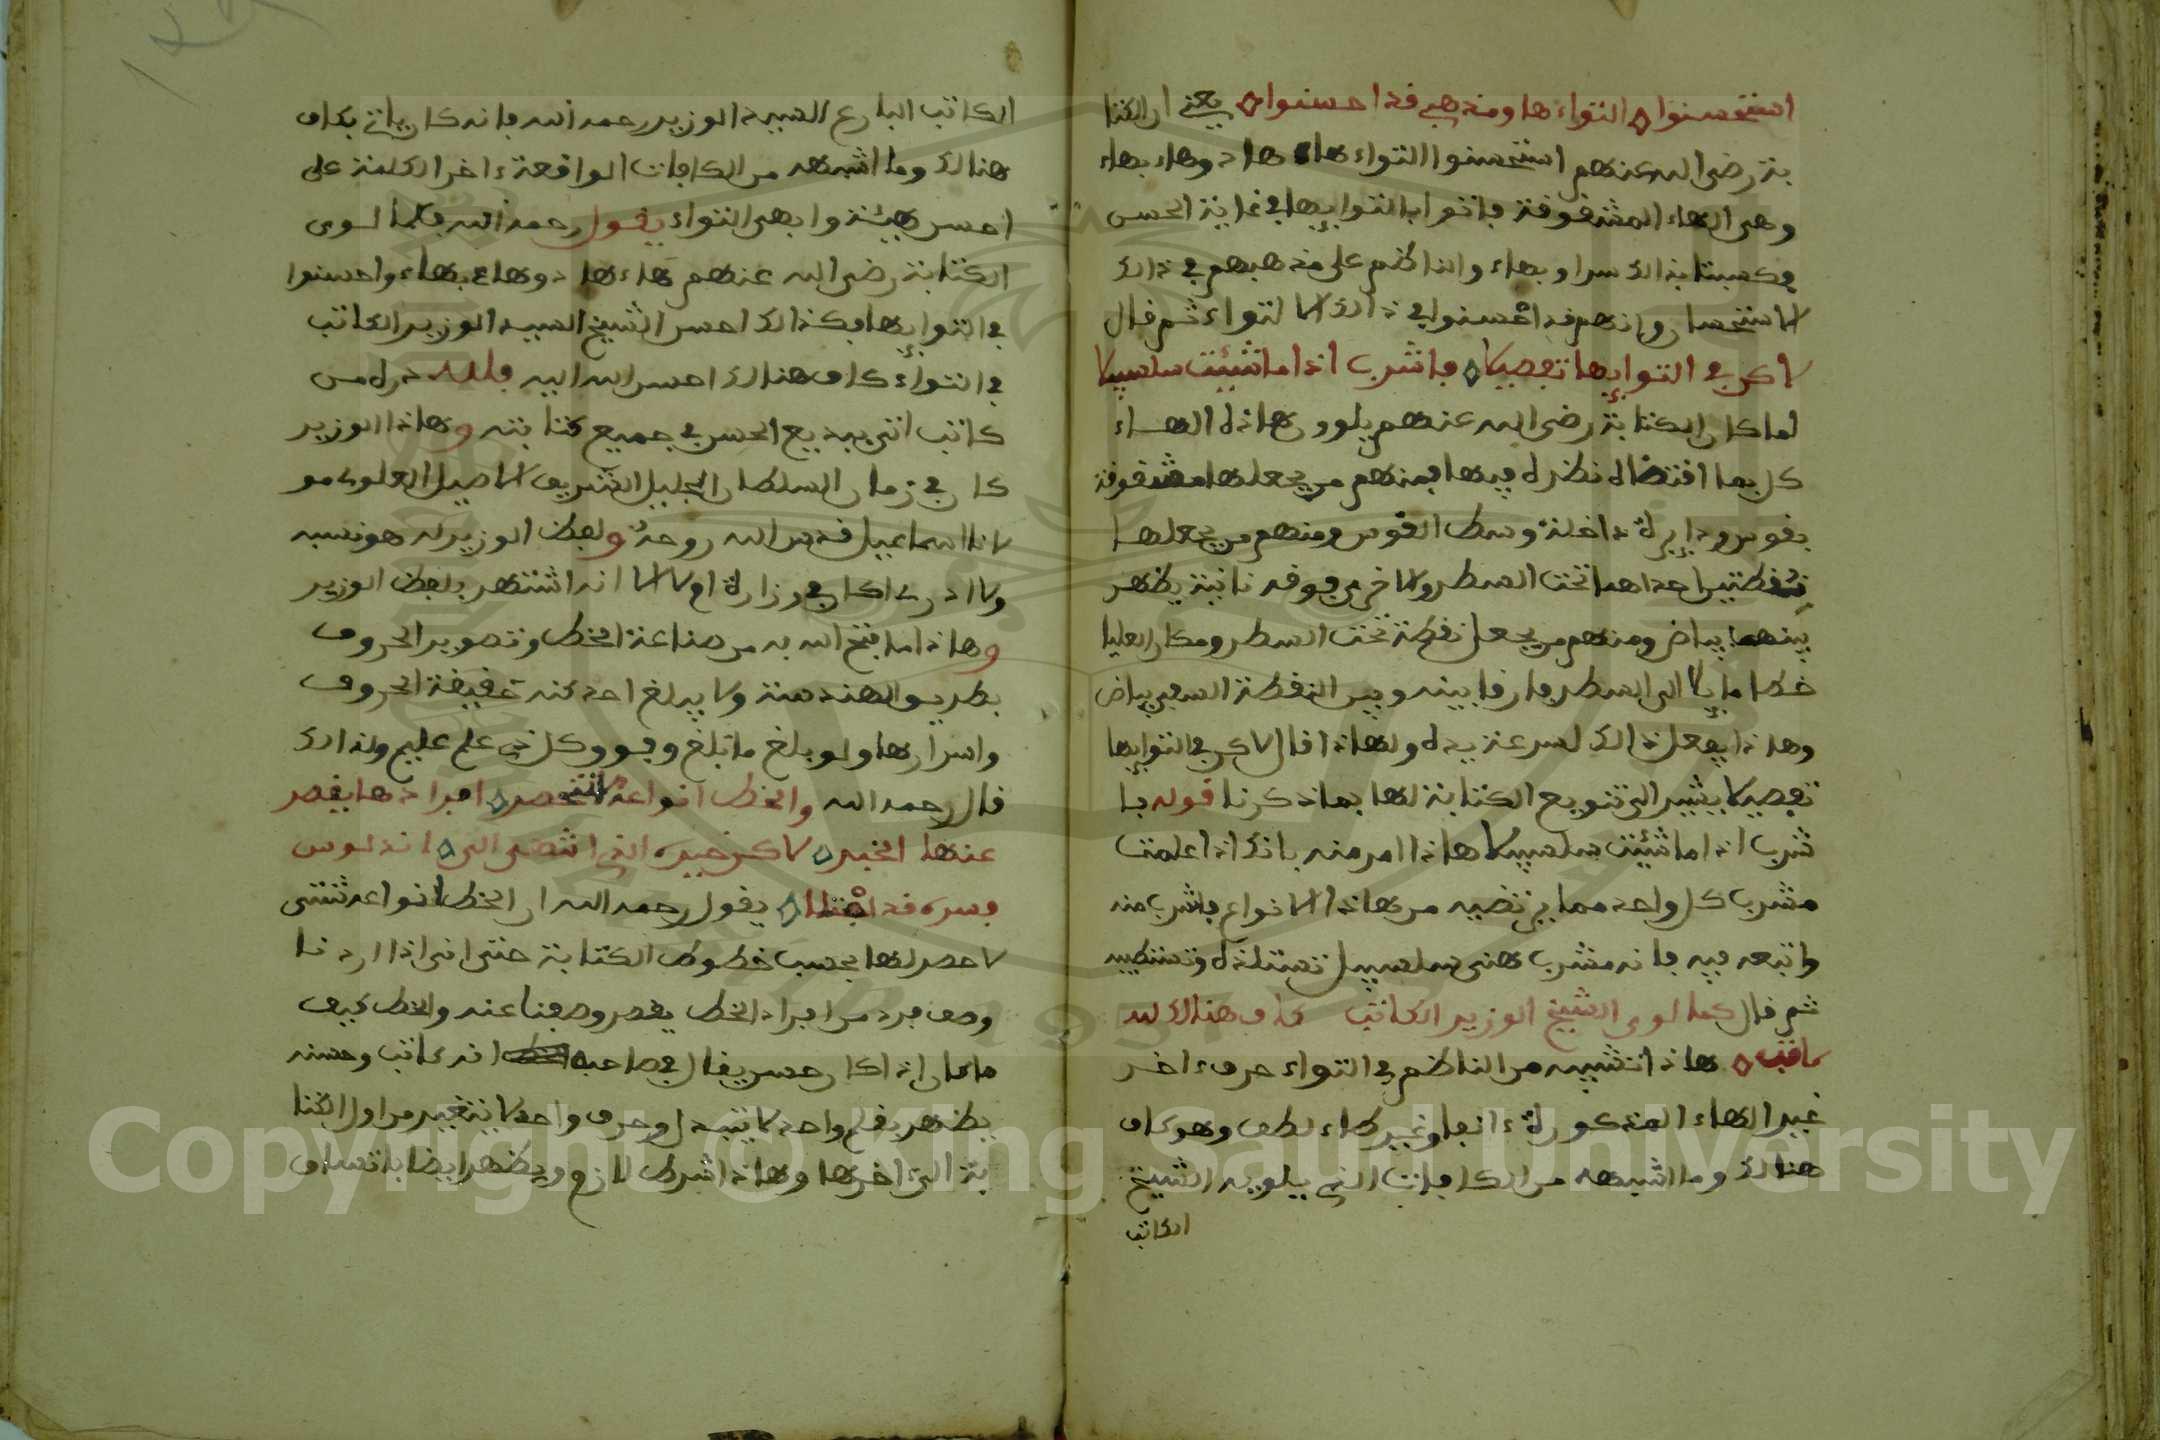 استحسنوا التواء ها ومذهبي قد احسنوا يعني ان الكتا
بة رضي الله عنهم استحسنوا التواء هاء هاد وهاء بهاء
وهي الهاء المشقوقة فاتوا بالتوايها في غاية الحسن
وكسيت بذالك سرا وبهاء والناظم على مذهبهم في ذالك
الاستحسان وانهم قد احسنوا في ذالك الالتواء ثم قال
لاكن في التوايها تفصيلا فاشرب اذا ما شئت سلسبيلا
لما كان الكتابة رضي الله عنهم يلوون هاذه الهاء
كل بما اقتضاه نظره فيها فمنهم من يجعلها مشقوقة
بقوس ودايرة داخلة وسط القوس ومنهم من يجعلها
نقطتين احداهما تحت السطر والاخرى فوقه ثانية يظهر
بينهما بياض ومنهم من يجعل نقطة تحت السطر ومكان العليا
خطا مايلا الى السطر فارقا بينه وبين النقطة السفلى بياض
وهاذا يفعل ذالك لسرعة يده ولهاذا قال لاكن في التوايها
تفصيلا يشير الى تنويع الكتابة لها بما ذكرنا قوله فا
شرب اذا ما شئت سلسبيلا هاذا امر منه بانك اذا علمت
مشرب كل واحد مما يرتضيه من هاذه الانواع فاشرب منه
واتبعه فيه فانه مشرب هني سلسبيل تستلذه وتستطيبه
ثم قال كما لوى الشيخ الوزير الكاتب كاف هنالك لله
كاتب هاذا تشبيه من الناظم في التواء حرف اخر
غير الهاء المذكورة انفا وغير طاء لطف وهو كاف
هنالك وما اشبهه من الكافات الذي يلويه الشيخ
الكاتب
الكاتب البارع السيد الوزير رحمه الله فانه كان ياتي بكاف
هنالك وما اشبهه من الكافات الواقعة ءاخر الكلمة على
احسن هيئة وابهى التواء يقول رحمه الله فكما لوى
الكتابة رضي الله عنهم هاء هاد وهاء بهاء واحسنوا
في التوايها فكذالك احسن الشيخ السيد الوزير الكاتب
في التواء كاف هنالك احسن الله اليه فلله دره من
كاتب اتى ببديع الحسن في جميع كتابته وهاذا الوزير
كان في زمان السلطان الجليل الشريف الاصيل العلوي مو
لانا اسماعيل قدس الله روحه ولفظ الوزير له هو نسبه
ولا ادري اكان في وزارة ام لا الا انه اشتهر بلفظ الوزير
وهاذا ما فتح الله به من صناعة الخط وتصوير الحروف
بطريق الهندسة ولا يبلغ احد كنه حقيقة الحروف
واسرارها ولو بلغ ما بلغ وفوق كل ذي علم عليم ولذالك
قال رحمه الله والخط انواعه لا تنحصر افرادها يقصر
عنها الخبر لاكن خبره الذي انتهى الى اندلوس
وسره قد يقول رحمه الله ان الخط انواعه شتى
لا حصر لها بحسب خطوط الكتابة حتى انى اذا اردنا
وصف فرد من افراد الخط يقصر وصفنا عنه والخط كيف
ما كان اذا كان حسن يقال في صاحبه انه كاتب وحسنه
يظهر بقلم واحد لا يتبدل وحرف واحد لا يتغير من اول الكتا
بة الى اخرها وهاذا شرط لازم ويظهر ايضا باتصاف
Copyright © King Saud University